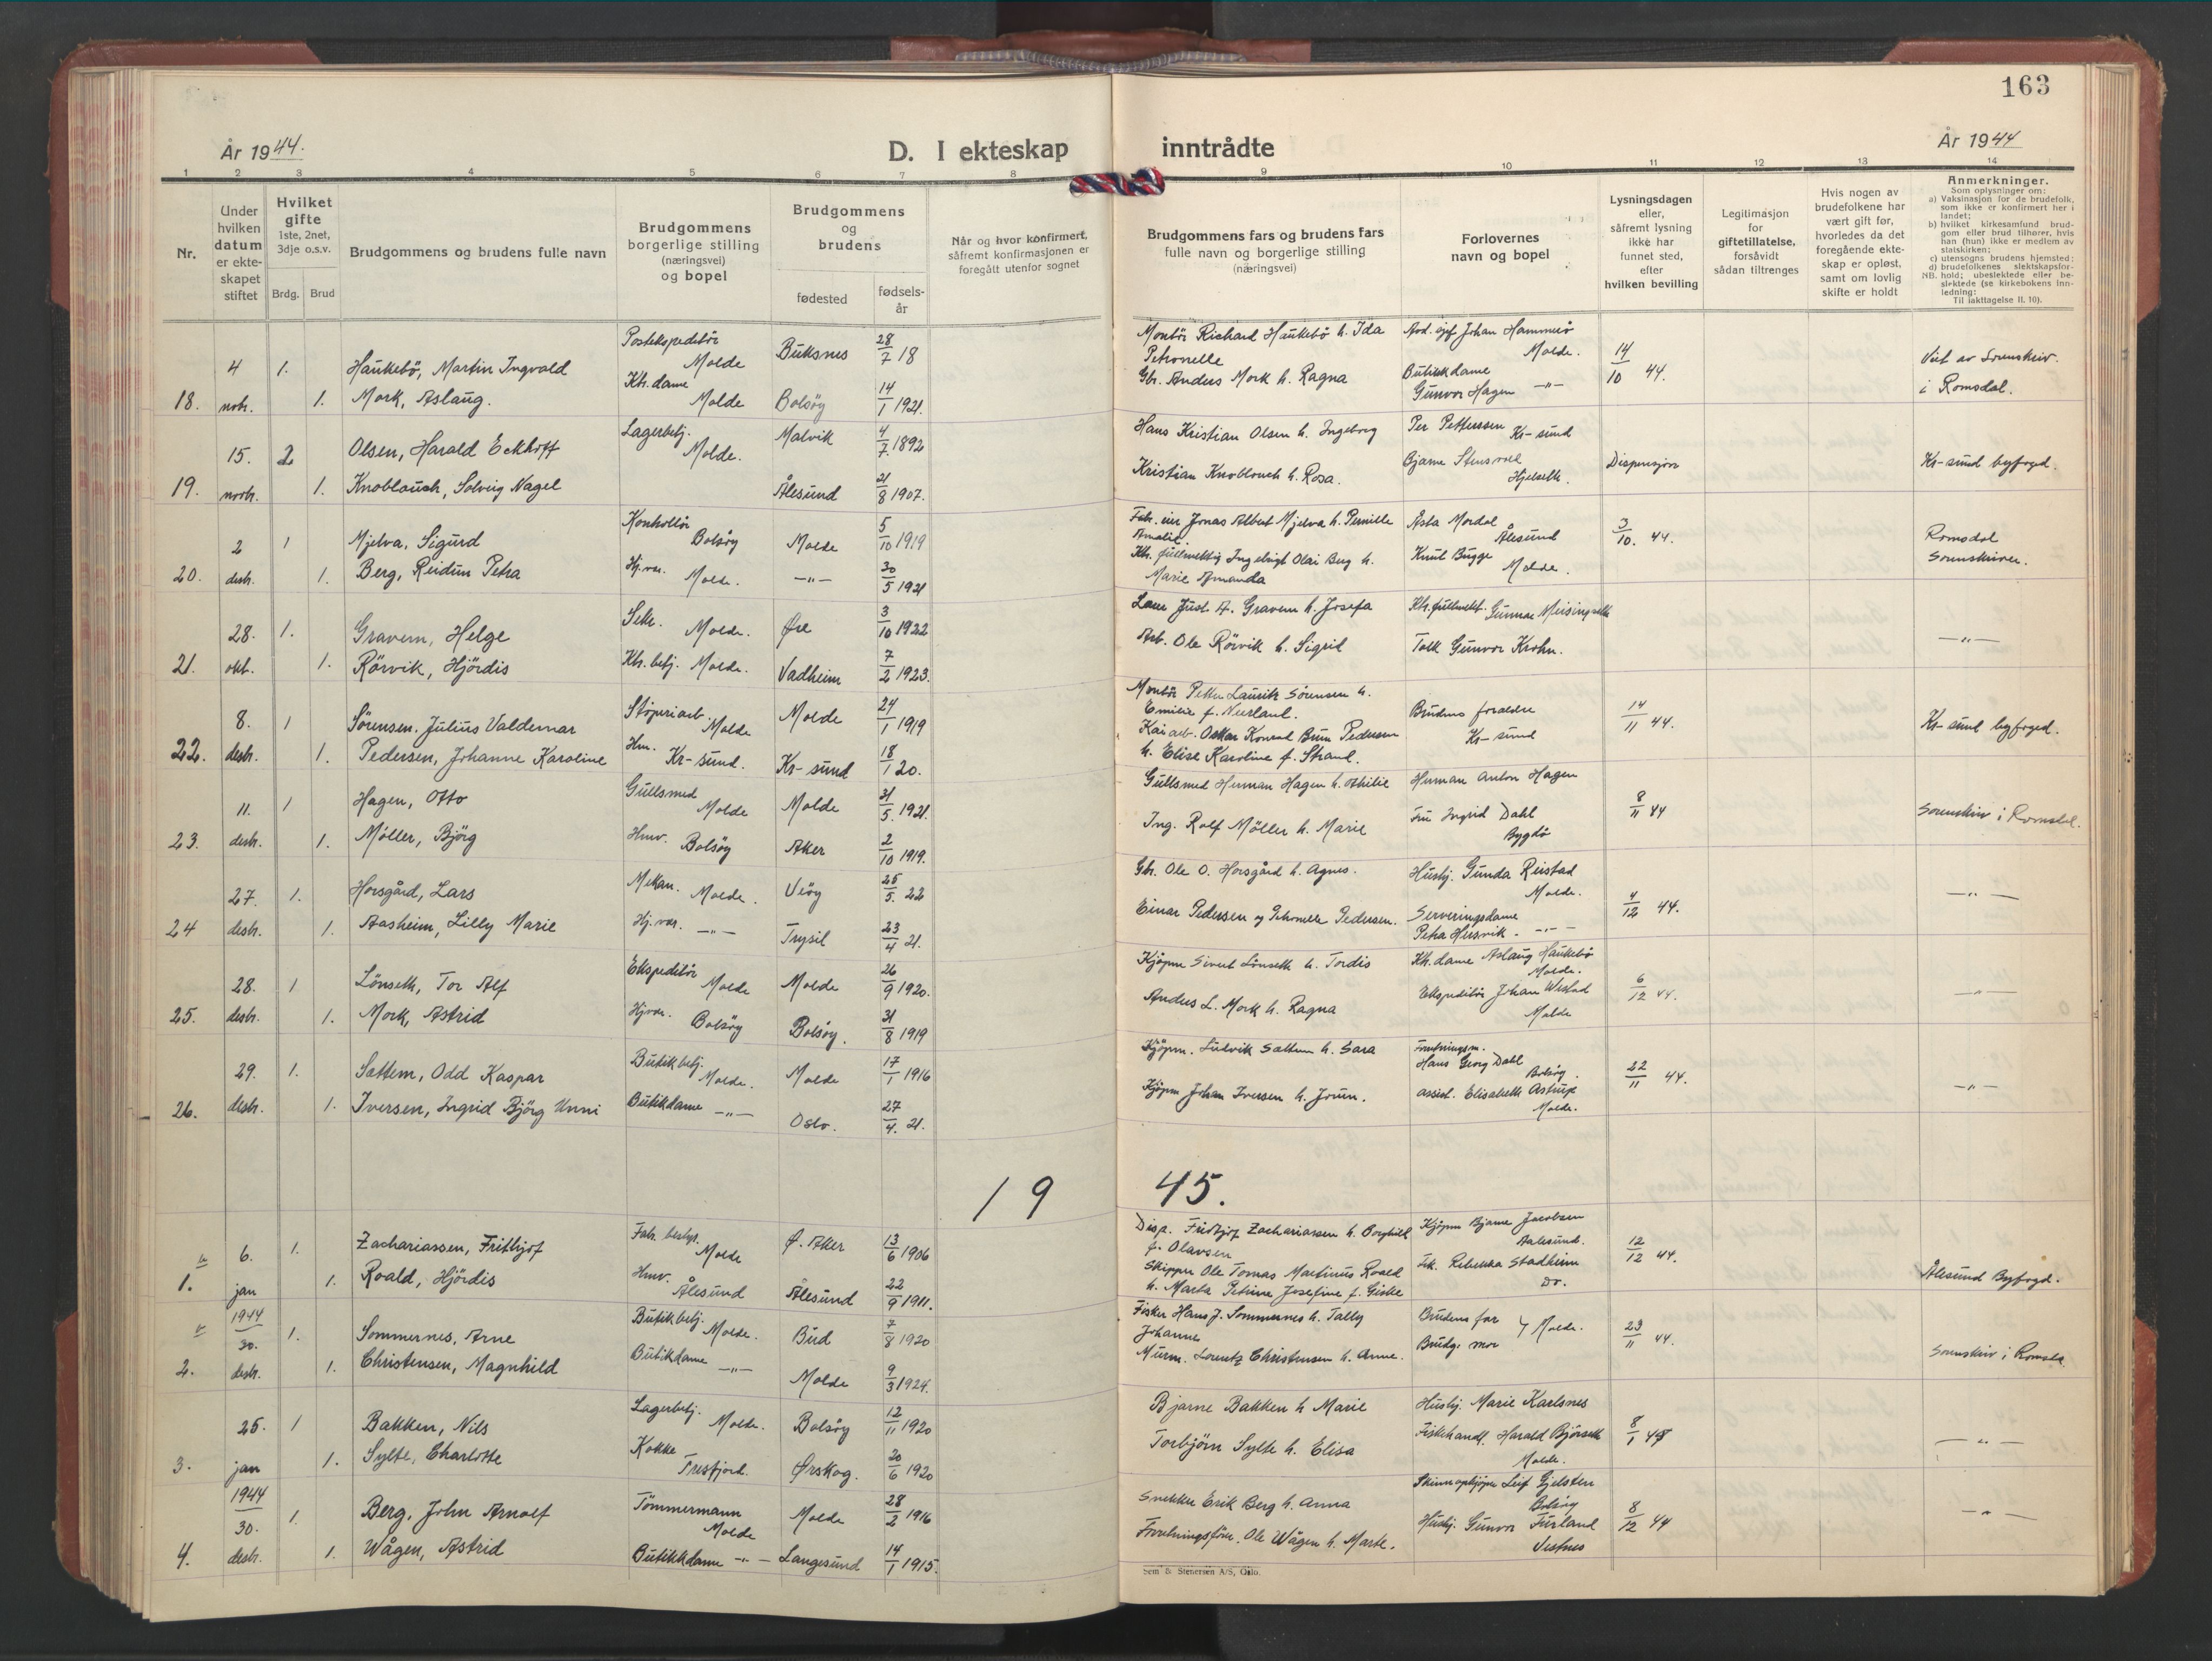 163
År 1944.
D. I ekteskap
inntrådte
År 1944
1 2 3 4 5 6 7 8 9 10 11 12 13 14
Nr.
Under
hvilken
datum
er ekte-
skapet
stiftet
Hvilket
gifte
1ste, 2net,
3dje o.s.v.
Brdg. Brud
Brudgommens og brudens fulle navn
Brudgommens
borgerlige stilling
(næringsvei)
og bopel
Brudgommens
og
brudens
fødested
fødsels-
år
Når og hvor konfirmert,
såfremt konfirmasjonen er
foregått utenfor sognet
Brudgommens fars og brudens fars
fulle navn og borgerlige stilling
(næringsvei)
Forlovernes
navn og bopel
Lysningsdagen
eller,
såfremt lysning
ikke har
funnet sted,
efter
hvilken bevilling
Legitimasjon
for
giftetillatelse,
forsåvidt
sådan tiltrenges
Hvis nogen av
brudefolkene har
vært gift før,
hvorledes da det
foregående ekte-
skap er opløst,
samt om lovlig
skifte er holdt
Anmerkninger.
Som oplysninger om:
a) Vaksinasjon for de brudefolk,
som ikke er konfirmert her i
landet;
b) hvilket kirkesamfund brud-
gom eller brud tilhører, hvis
han (hun) ikke er medlem av
statskirken;
c) utensogns brudens hjemsted;
d) brudefolkenes slektskapsfor-
NB. hold; ubeslektede eller be-
slektede (se kirkebokens inn-
ledning:
Til iakttagelse II. 10).
18. 4 novb. 1. Haukebö, Martin Ingvald Postekspeditör Molde Buksnes 28/7 18
1. Mork, Aslaug. Kh. dame Molde Bolsöy 14/1 1921.
Montör Richard Haukebö h. Ida
Petronelle
Gbr. Anders Mork h. Ragna
Johan Hammerö
Molde.
Butikkdame
Gunvor Hagen —"—
14/10 44.
Viet av Sorenskriv.
i Romsdal.
19. 15. novb. 2 Olsen, Harald Eckhoff Lagerbetj. Molde. Malvik 4/7 1892
1. Knoblauch, Solveig Nagel Ålesund 21/8 1907.
Hans Kristian Olsen h. Ingeborg
Kristian Knoblauch h. Rosa.
Per Petterssen Kr-sund
Bjarne Stensvoll
Hjelseth.
Dispensjon
Kr-sund byfogd.
20. 2 desb. 1 Mjelva, Sigurd Kontrollör Bolsöy Molde 5/10 1919
1. Berg, Reidun Petra Hj.var. Molde. —"— 30/5 1921
Fabr. eier Jonas Albert Mjelva h. Pernille
Amalie.
Kh. fullmektig Ingebrigt Olai Berg h.
Marie Amanda
Åsta Mordal
Ålesund
Knut Bugge
Molde.
3/10. 44.
Romsdal
Sorenskriver.
21. 28. okt. 1. Gravem, Helge Sekr. Molde. Øre 3/10 1922
1. Rörvik, Hjördis Kh. betj. Molde. Vadheim 7/2 1923.
Just. A. Gravem h. Josefa
Arb. Ole Rörvik h. Sigrid
Kh. fullmekt. Gunnar Meisingseth
Tolk Gunvor Krohn.
—"—
22. 8. desb. 1 Sörensen, Julius Valdemar Støperiarb. Molde Molde 24/1 1919
1. Pedersen, Johanne Karoline Hm. Kr-sund. Kr-sund 18/1 20.
Montör Petter Lauritz Sörensen h.
Emilie f. Neerland.
Kaiarb. Oskar Konrad Brun Pedersen
h. Elise Karoline f. Strand.
Brudens foreldre
Kr-sund
14/11 44.
Kr-sund byfogd.
23. 11. desb. 1 Hagen, Otto Gullsmed Molde Molde 31/5 1921.
1. Möller, Björg Hmv. Bolsöy Aker 2/10 1919.
Gullsmed Herman Hagen h. Othilie
Ing. Rolf Möller h. Marie
Herman Anton Hagen
Fru Ingrid Dahl
Bygdö
8/11 44
Sorenskriv i Romsdal.
24 27. desb. 1. Horsgård, Lars Mekan. Molde. Veöy 25/5. 22
1. Aasheim, Lilly Marie Hj.var. —"— Trysil 23/4 21.
Gbr. Ole O. Horsgård h. Agnes.
Einar Pedersen og Petronelle Pedersen.
Husbj. Gunda Reistad
Molde.
Serveringsdame
Petra Hersvik. —"—
4/12 44.
—"—
25. 28. desb. 1 Lönseth, Tor Alf Ekspeditör Molde Molde 26/9 1920.
1. Mork, Astrid Hjvar. Bolsöy Bolsöy. 31/8 1919
Kjöpm Sivert Lönseth h. Tordis
Anders L. Mork h. Ragna
Kh. dame Aslaug Haukebö
Molde.
Ekspeditör Johan Westad
Molde
6/12 44.
—"—
26. 29. desb. 1. Sættem, Odd Kaspar Butikbetj. Molde. Molde 17/1 1916
1. Iversen, Ingrid Björg Unni Butikdame —"— Oslo. 27/4. 21.
Kjöpm. Ludvik Sættem h. Sara
Kjöpm Johan Iversen h. Jorun.
Forretningsm.
Hans Georg Dahl
Bolsöy.
assist. Elisabeth Astrup
Molde.
22/11 44.
—"—
19 45.
1. 6. jan 1. Zachariassen, Frithjof Fabr. bestyr. Molde Ø. Aker 13/6 1906
1. Roald, Hjördis Hmv. Ålesund Ålesund 22/9 1911.
Disp. Fridtjof Zachariassen h. Borghild
f. Olavsen
Skipper Ole Tomas Martinus Roald
h. Marta Petrine Josefine f. Giske
Kjöpm Bjarne Jacobsen
Aalesund.
Frk. Rebekka Stadheim
Do.
12/12 44.
Ålesund Byfogd.
2. 1944 30. desb. 1. Sommernes, Arne Butikbetj. Molde. Bud 7/8 1920
1. Christensen, Magnhild Butikdame —"— Molde 9/3 1924.
Fisker Hans J. Sommernes h. Tally
Johanne
Murm. Lorentz Christensen h. Anne.
Brudens far
Brudg. mor
Molde.
23/11 44.
Sorenskriv i Romsda
3. 25. jan 1 Bakken, Nils Lagerbetj. Molde. Bolsöy 12/11 1920
1. Sylte, Charlotte Kokke Tresfjord. Ørskog. 20/6 1920
Bjarne Bakken h Marie
Torbjörn Sylte h. Elisa
Husbj. Marie Karlsnes
Fiskehandl. Harald Björseth
Molde.
8/1 45
—"—
4. 1944 30. desb. 1. Berg, John Arnolf Tömmermann Molde Molde 28/2 1916
1. Wågen, Astrid Butikkdame —"— Langesund 14/1 1915.
Snekker Erik Berg h. Anna
Forretningsförer. Ole Wågen h. Marte.
Skinnopkjöper Leif Gjelsten
Bolsöy
Husbj. Gunvor Furland
Vestnes
8/12 44
—"—
Sem & Stenersen A/S, Oslo.